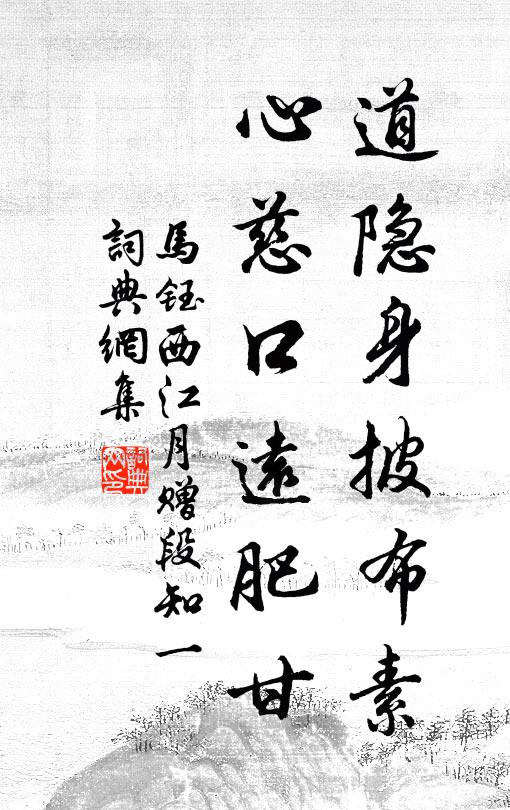 道隐身披布素
心慈口遠肥甘
馬鈺西江月赠段知一
詞典網集
詞典网印